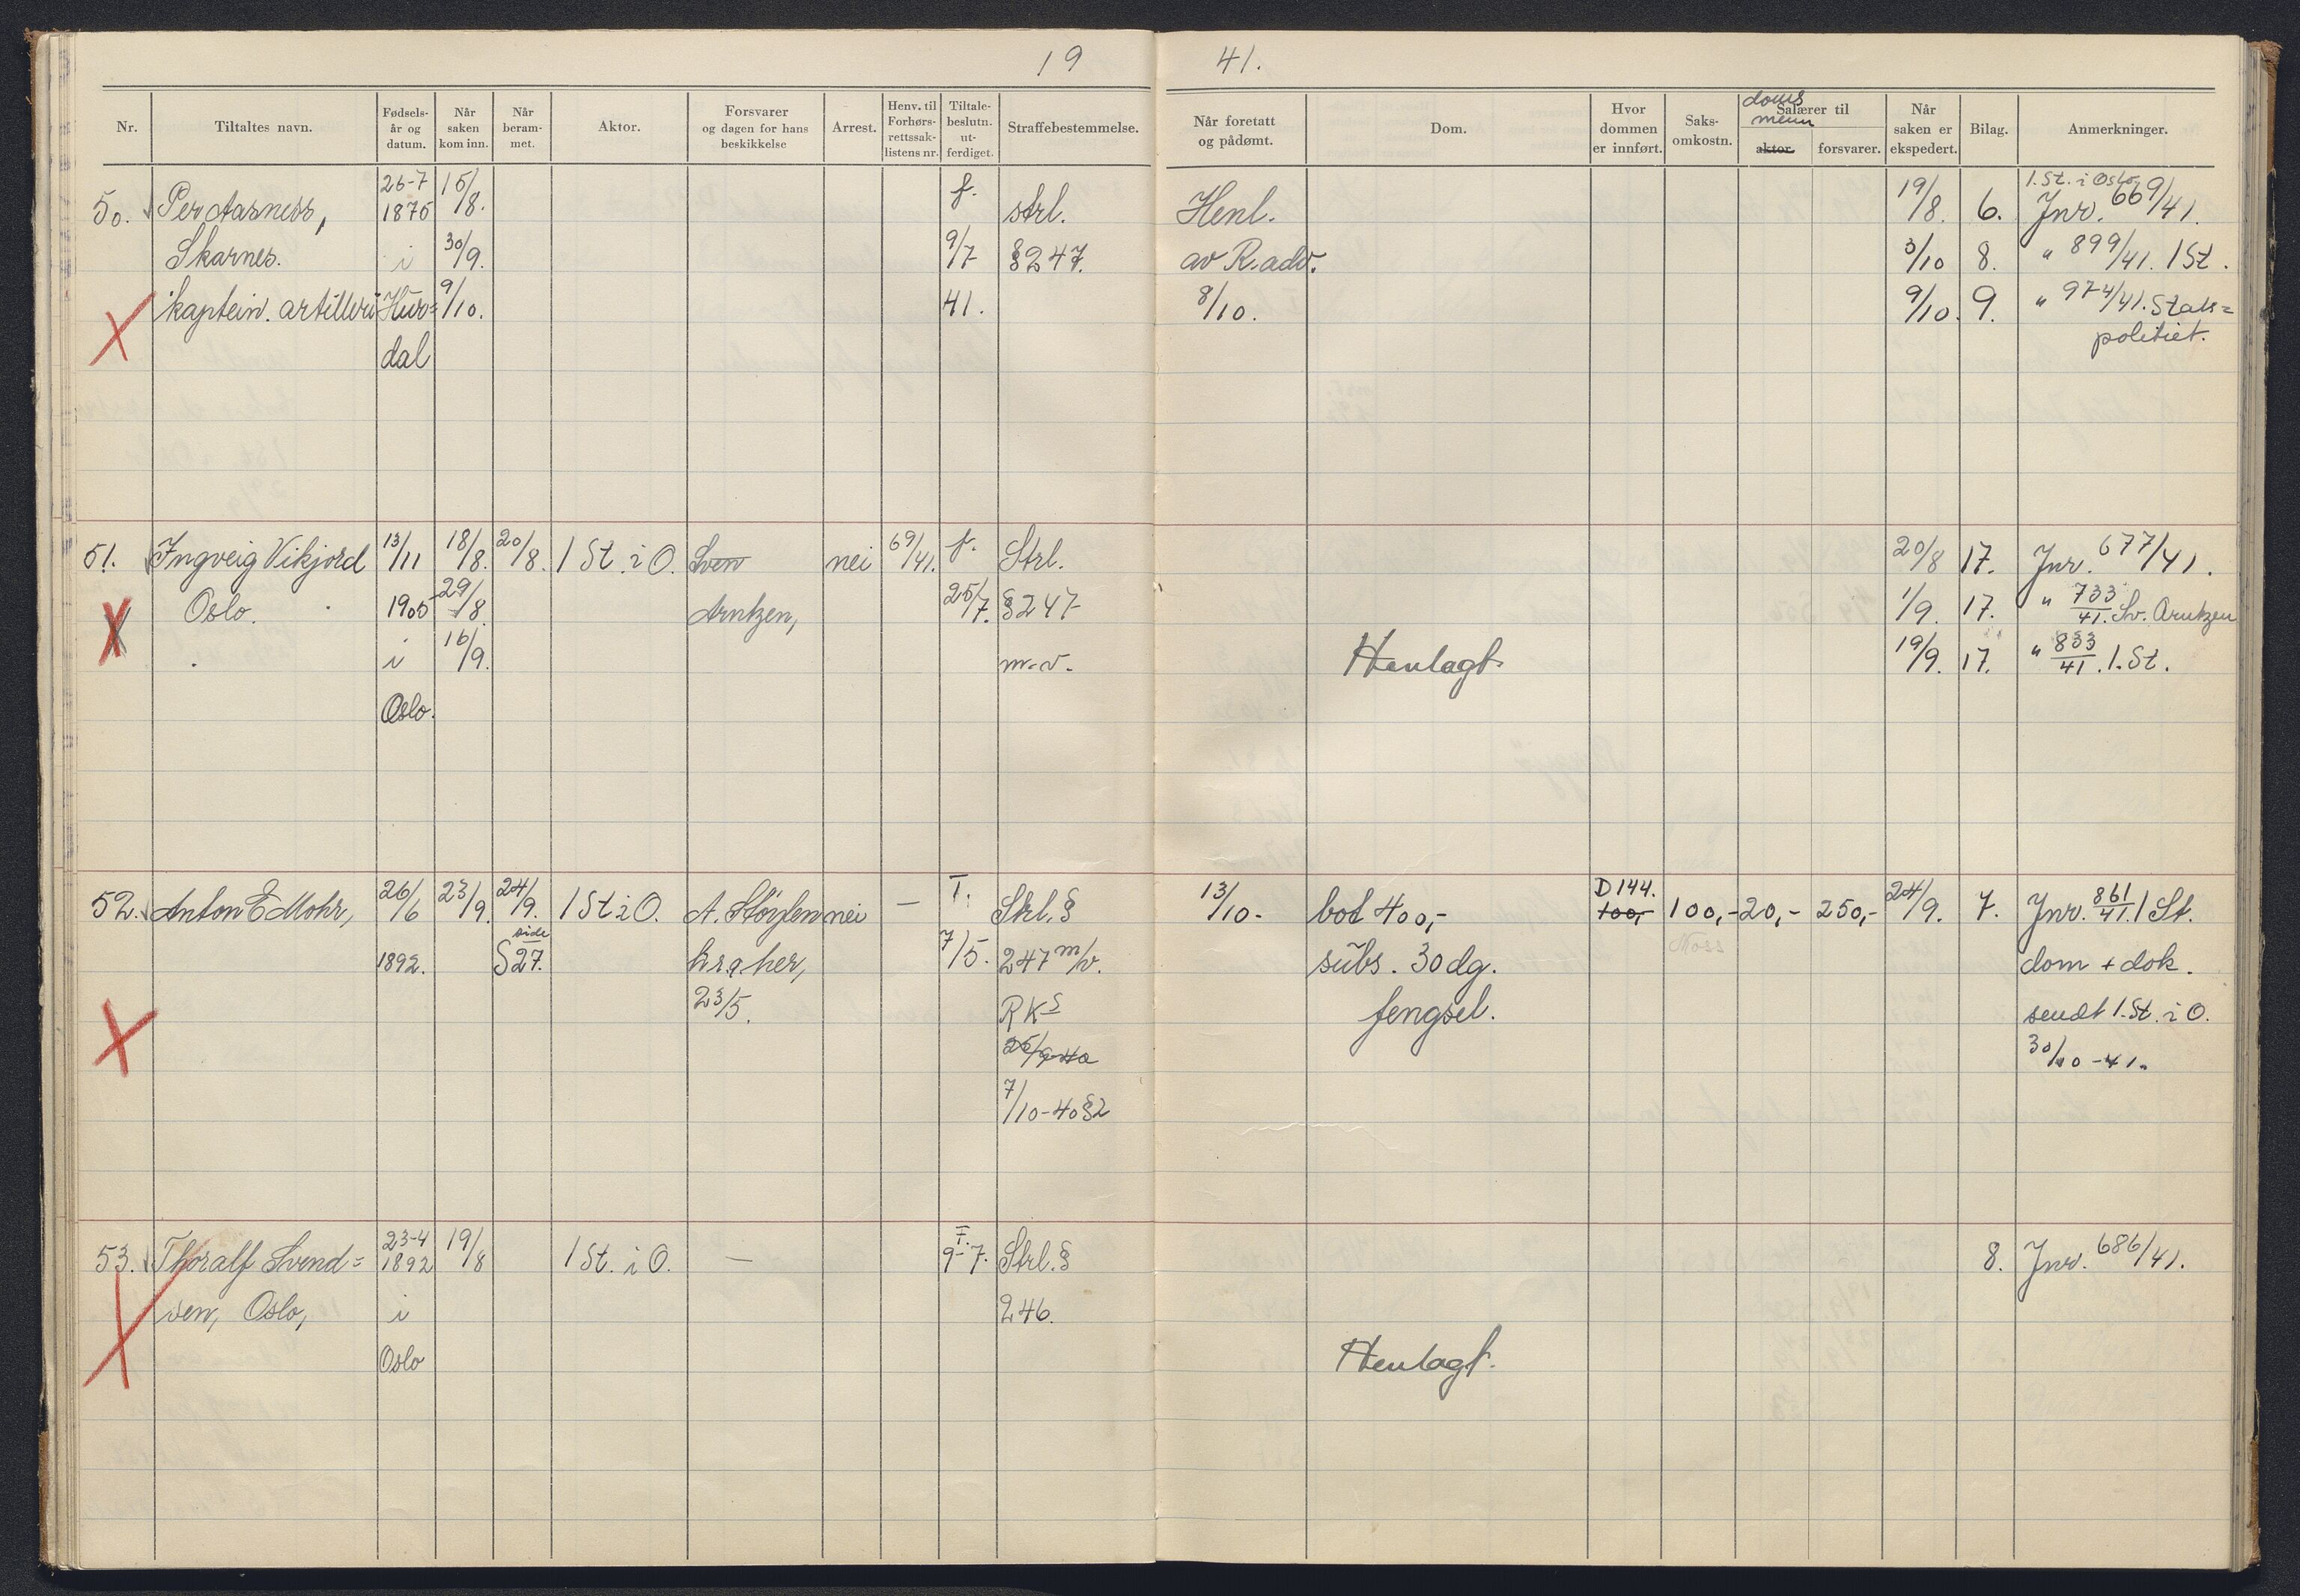 19 41.
Nr. Tiltaltes navn. Fødsels-år og datum. Når saken kom inn. Når beram-met. Aktor. Forsvarer og dagen for hans beskikkelse Arrest. Henv. til Forhørs-rettssak-listens nr. Tiltale-beslutn. ut-ferdiget. Straffebestemmelse. Når foretatt og pådømt. Dom. Hvor dommen er innført. Saks-omkostn. doms menn Salærer til aktor. forsvarer. Når saken er ekspedert. Bilag. Anmerkninger.
50. Per Aasness, 26-7 1875 15/8. f. strl. Henl. 19/8. 6. 1. St. i Oslo. Jnr. 669/41.
Skarnes. i 30/9. 9/7 § 247. av R.adv. 3/10 8. " 899/41. 1 St.
kaptein. artilleri Hur= 9/10. 41. 8/10. 9/10. 9. " 974/41. Stats=
dal politiet.
51. Ingveig Vikjord 13/11 18/8. 20/8. 1 St. i O. Sven nei 69/41. f. Strl. 20/8 17. Jnr. 677/41.
Oslo. 1905 29/8. Arntzen, 25/7. § 247 1/9. 17. " 733/41. Sv. Arntzen
i 16/9. m.v. Henlagt. 19/9. 17. " 833/41. 1. St.
Oslo.
52. Anton E Mohr, 26/6 23/9. 24/9. 1 St i O. A. Støylen nei — T. Strl. § 13/10- bot 400,- D 144. 100,- 100,- 20,- 250,- 24/9. 7. Jnr. 861/41. 1 St.
1892. side S 27. hr.a. her, 7/5. 247 m/v. subs. 30 dg. Noss dom + dok.
23/5. RK§ fengsel. sendt 1. St. i O.
25/9-40 30/10-41.
7/10-40 § 2
53. Thoralf Svend= 23-4 1892 19/8 1 St. i O. — T. 9-7. Strl. § 8. Jnr. 686/41.
sen, Oslo, i 246.
Oslo Henlagt.